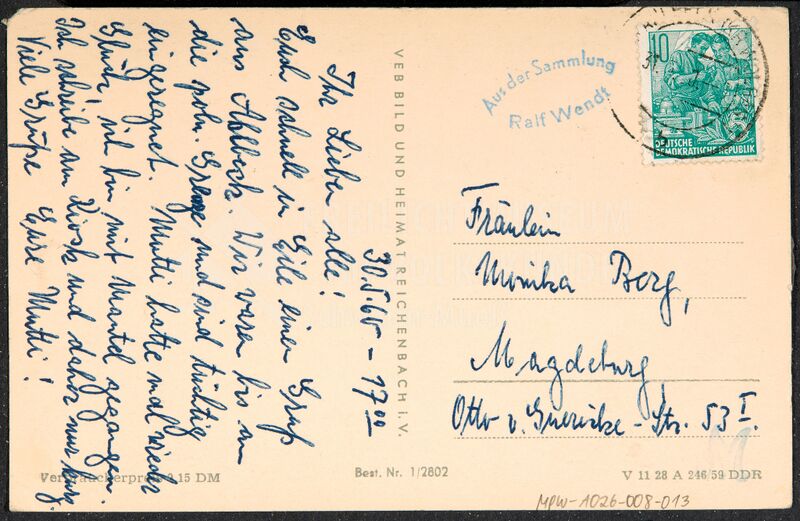 30.5.60 - 17⁰⁰
Ihr Lieben alle!
Euch schnell in Eile einen Gruß
aus Ahlbeck. Wir waren bis an
die poln. Grenze und sind tüchtig
eingeregnet. Mutti hatte mal wieder
Glück, ich bin mit Mantel gegangen.
Ich schreibe am Kiosk und daher nur kurz.
Viele Grüße Eure Mutti!
VEB BILD UND HEIMAT REICHENBACH i. V.
Aus der Sammlung
Ralf Wendt
10
DEUTSCHE
DEMOKRATISCHE REPUBLIK
Fräulein
Monika Berg,
Magdeburg,
Otto v. Guericke-Str. 53 I.
Verbraucherpreis 0,15 DM
Best. Nr. 1/2802
V 11 28 A 246/59 DDR
MPW-1026-008-013